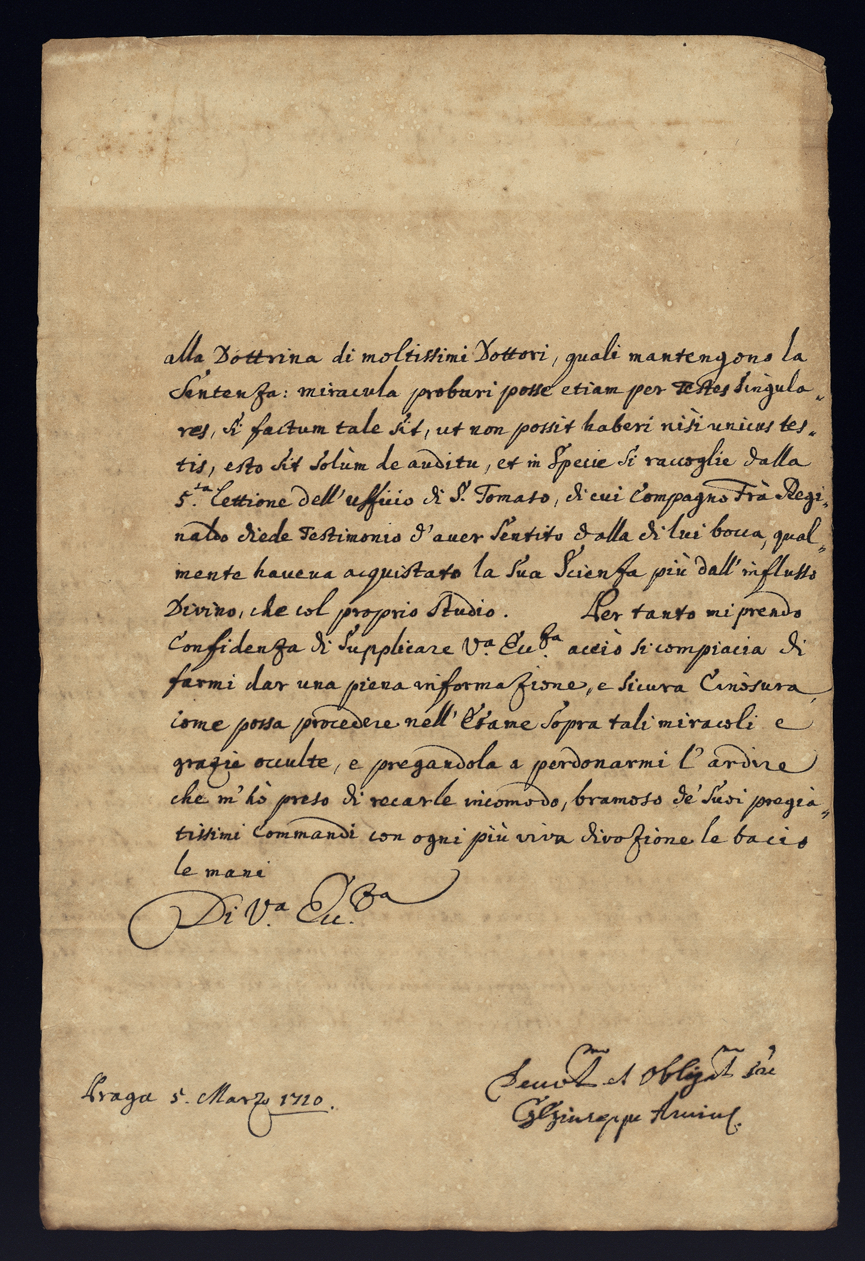 alla Dottrina di moltissimi Dottori, quali mantengono la
Sentenza: miracula probari posse etiam per Testes singula„
res, si factum tale sit, ut non possit haberi nisi unicus tes„
tis, esto sit solùm de auditu, et in specie si raccoglie dalla
5.ta Lettione dell' uffitio di S. Tomaso, di cui Compagno Frà Regi„
naldo diede Testimonio d'aver sentito dalla di lui bocca, qual„
mente haveva acquistato la sua Scienza più dall' influsso
Divino, che col proprio studio. Per tanto mi prendo
Confidenza di supplicare V.a Ecc.za acciò si compiacia di
farmi dar una piena informazione, e sicura Cinosura,
come possa procedere nell' Esame sopra tali miracoli e
grazie occulte, e pregandola a perdonarmi l'ardire
che m'hò preso di recarle incomodo, bramoso de' suoi pregia„
tissimi Commandi con ogni più viva divozione le bacio
le mani
Di V.a Ecc.za
Praga 5. Marzo 1720.
et Obligat.mo
Giuseppe